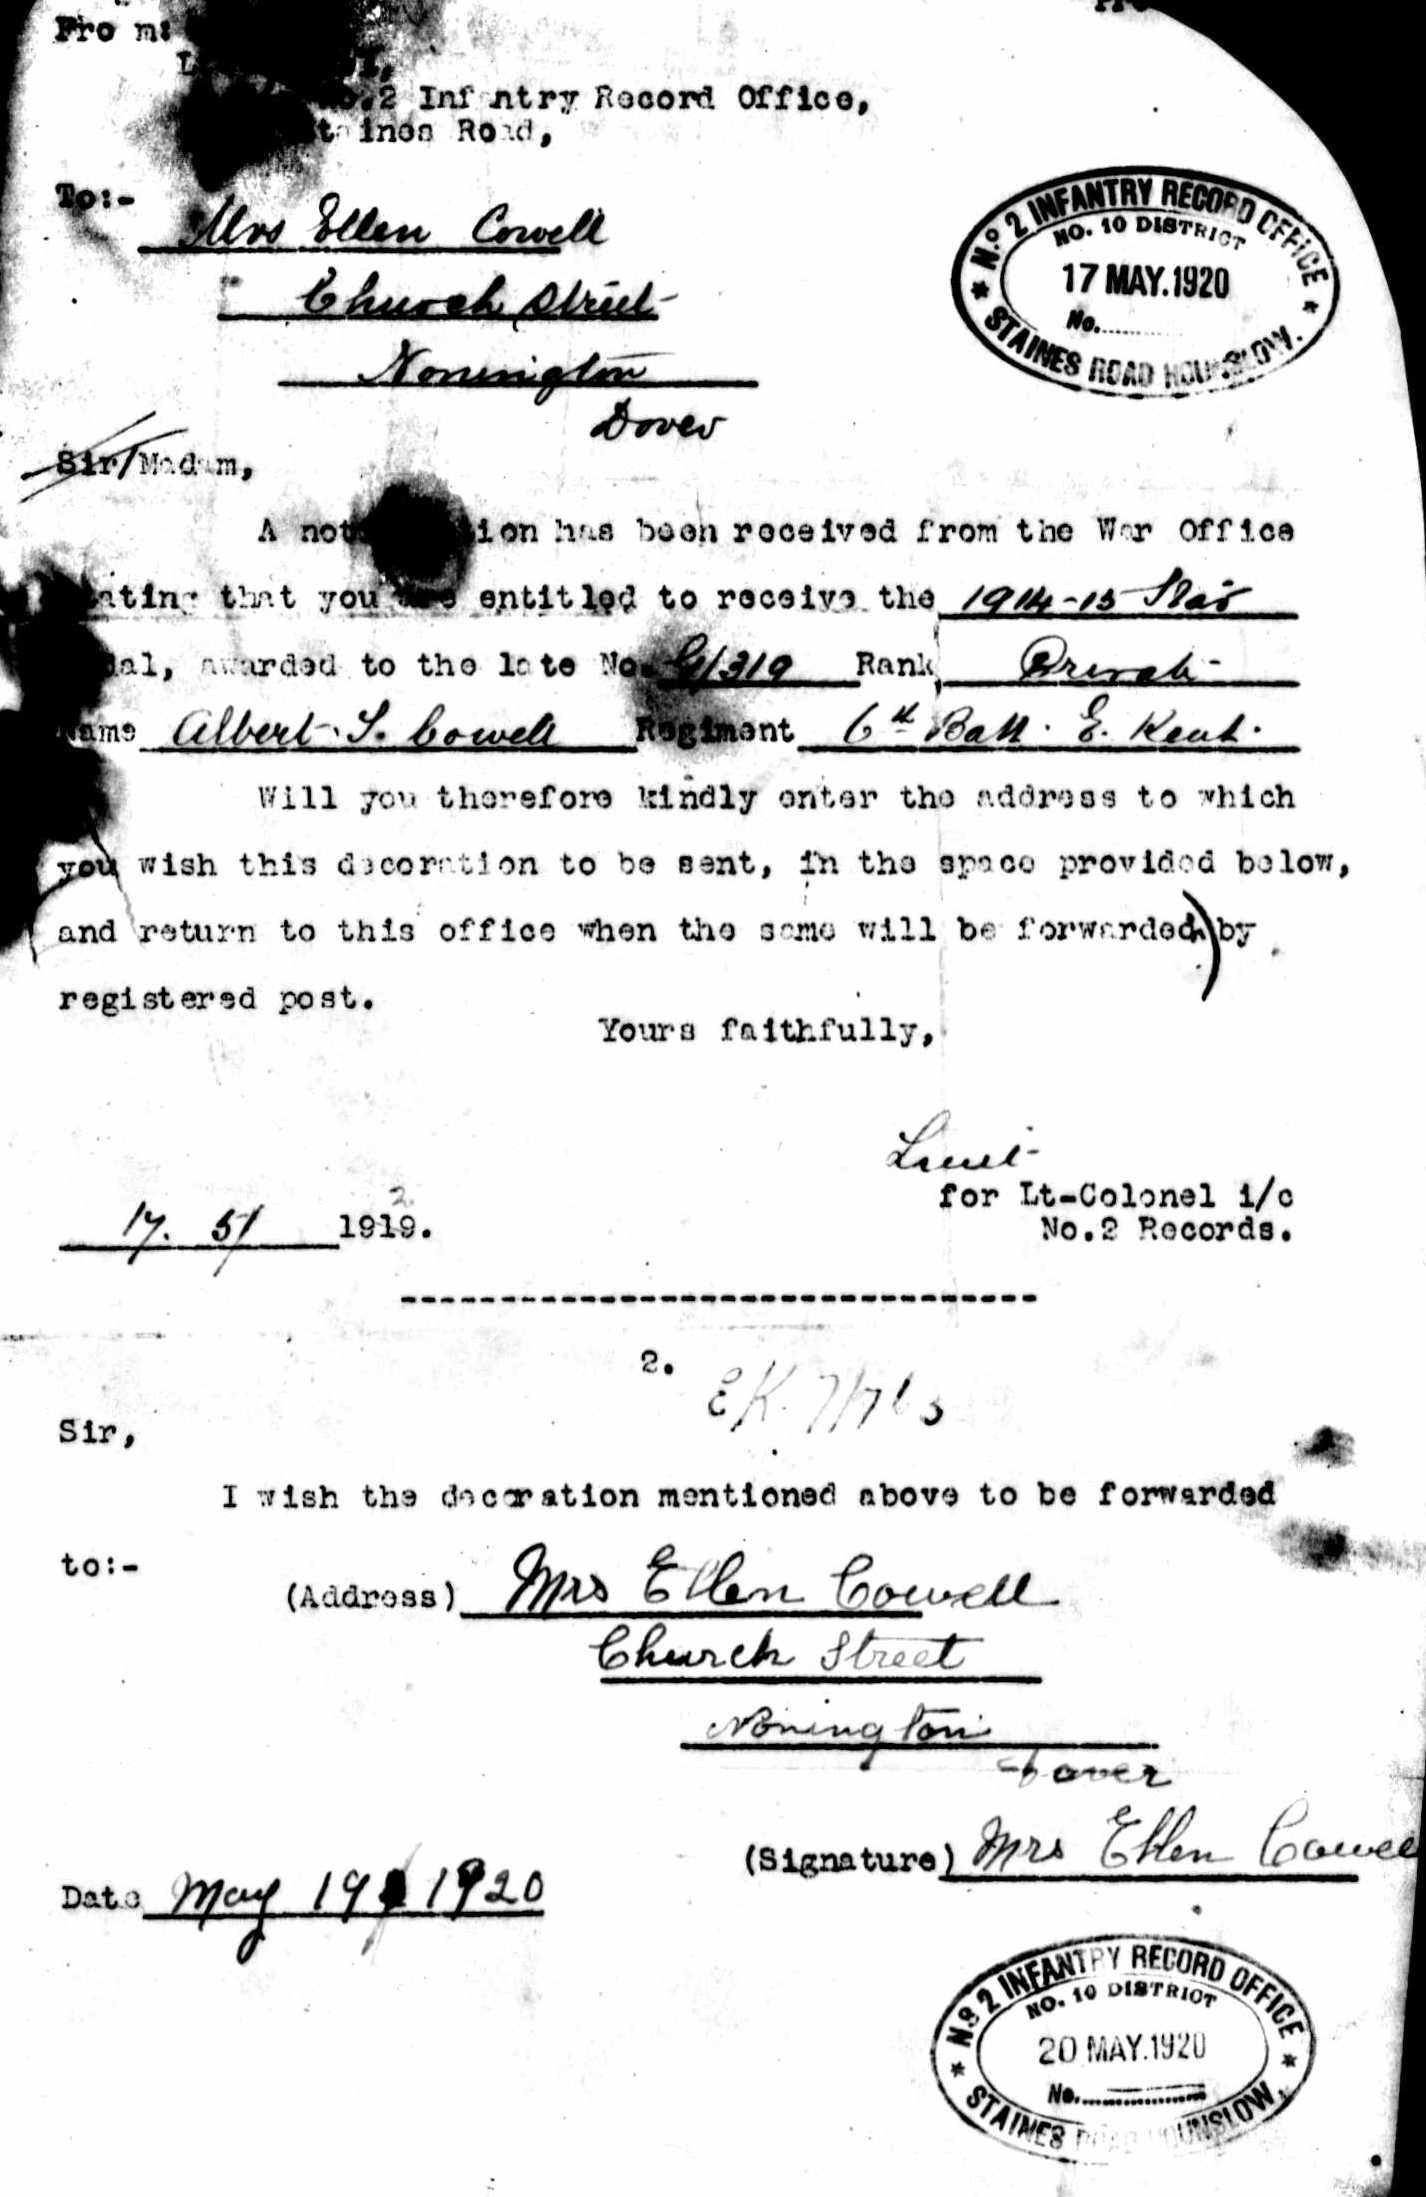 From:
No.2 Infantry Record Office,
Staines Road,
To:-
Mrs Ellen Cowell
Church Street
Nonington
Dover
No 2 INFANTRY RECORD OFFICE
NO. 10 DISTRICT
17 MAY.1920
No.
STAINES ROAD HOUNSLOW.
Sir/Madam,
A notification has been received from the War Office
stating that you are entitled to receive the 1914-15 Star
Medal, awarded to the late No. G/319 Rank Private
Name Albert S. Cowell Regiment 6th Batt. E. Kent.
Will you therefore kindly enter the address to which
you wish this decoration to be sent, in the space provided below,
and return to this office when the same will be forwarded by
registered post.
Yours faithfully,
Lieut
for Lt-Colonel i/c
No.2 Records.
17. 5/ 1919.
2.
EK
Sir,
I wish the decoration mentioned above to be forwarded
to:-
(Address) Mrs Ellen Cowell
Church Street
Nonington
Dover
(Signature) Mrs Ellen Cowell
Date May 19 1920
No 2 INFANTRY RECORD OFFICE
NO. 10 DISTRICT
20 MAY.1920
No.
STAINES ROAD HOUNSLOW.